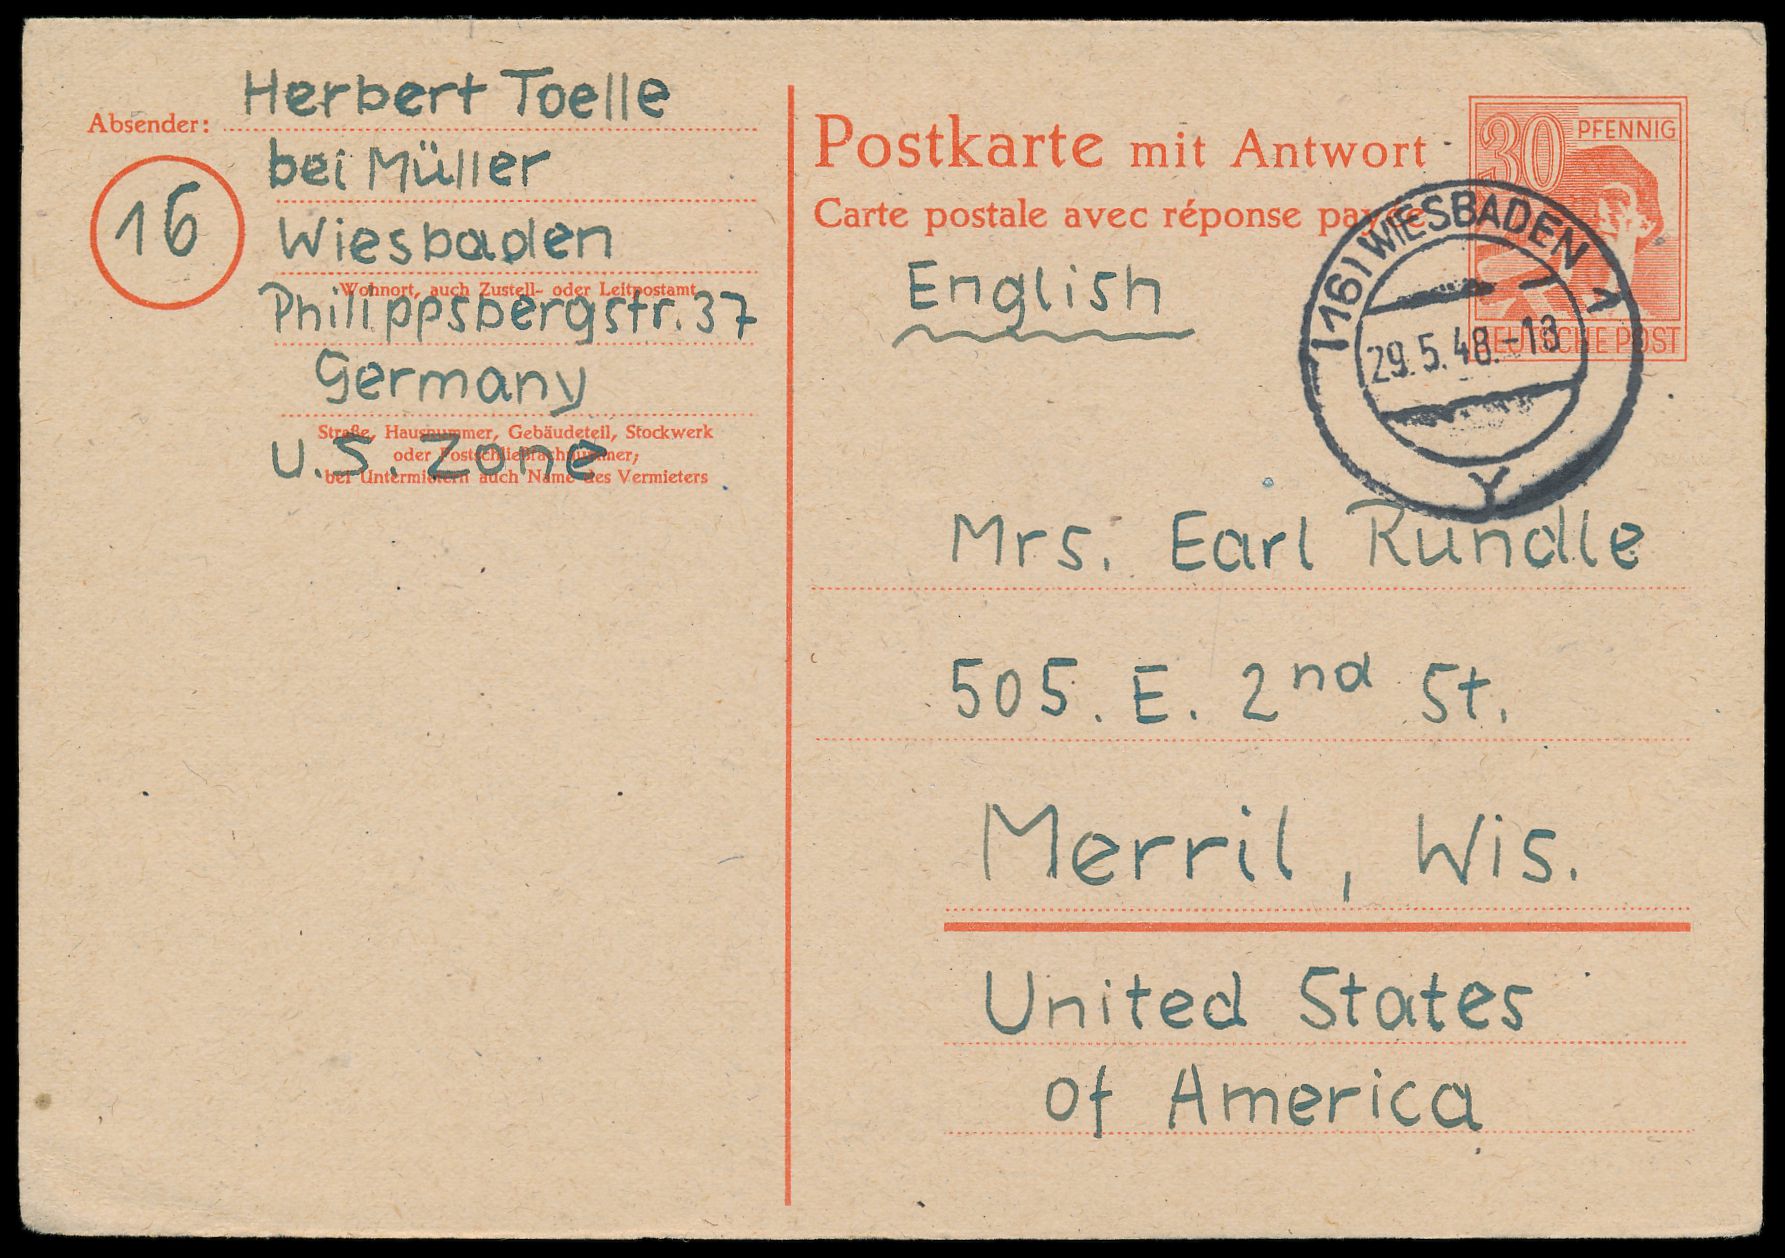 Absender: Herbert Toelle
bei Müller
16
Wiesbaden
Wohnort, auch Zustell- oder Leitpostamt
Philippsbergstr. 37
Germany
Straße, Hausnummer, Gebäudeteil, Stockwerk
oder Postschließfachnummer;
U.S. Zone
bei Untermietern auch Name des Vermieters
Postkarte mit Antwort
Carte postale avec réponse payée
English
30 PFENNIG
DEUTSCHE POST
(16) WIESBADEN 1
29.5.48.-18
Y
Mrs. Earl Rundle
505. E. 2nd St.
Merril, Wis.
United States
of America